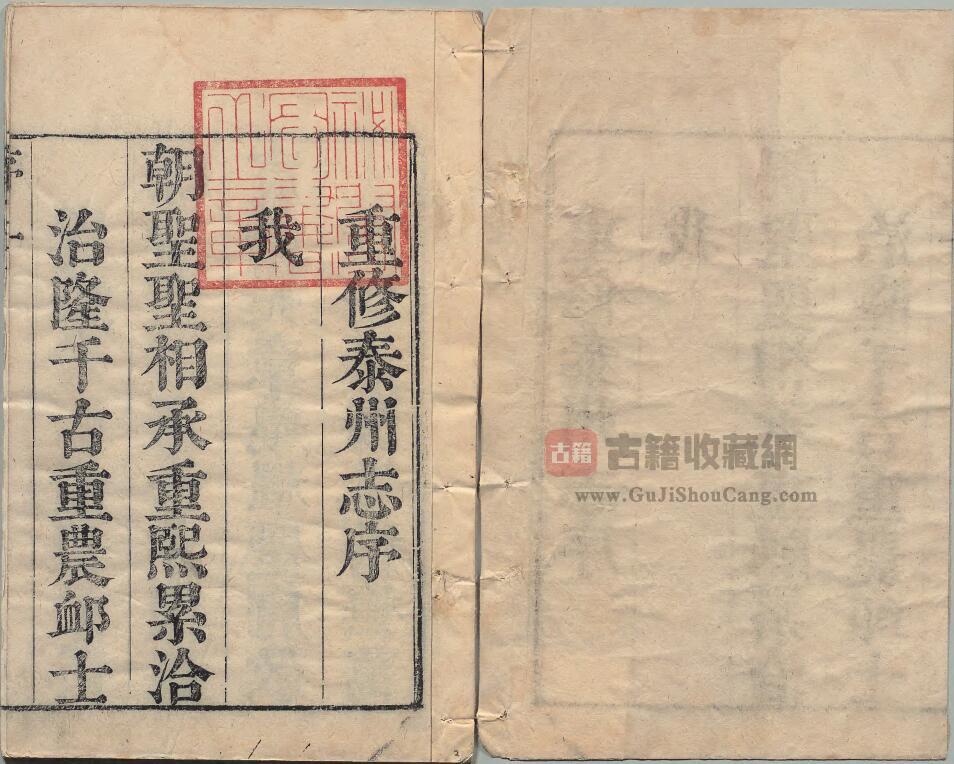 重修泰州志序
我
朝聖聖相承重熙累洽
治隆千古重農䘏士
序 一
古籍
古籍收藏網
www.GuJiShouCang.com